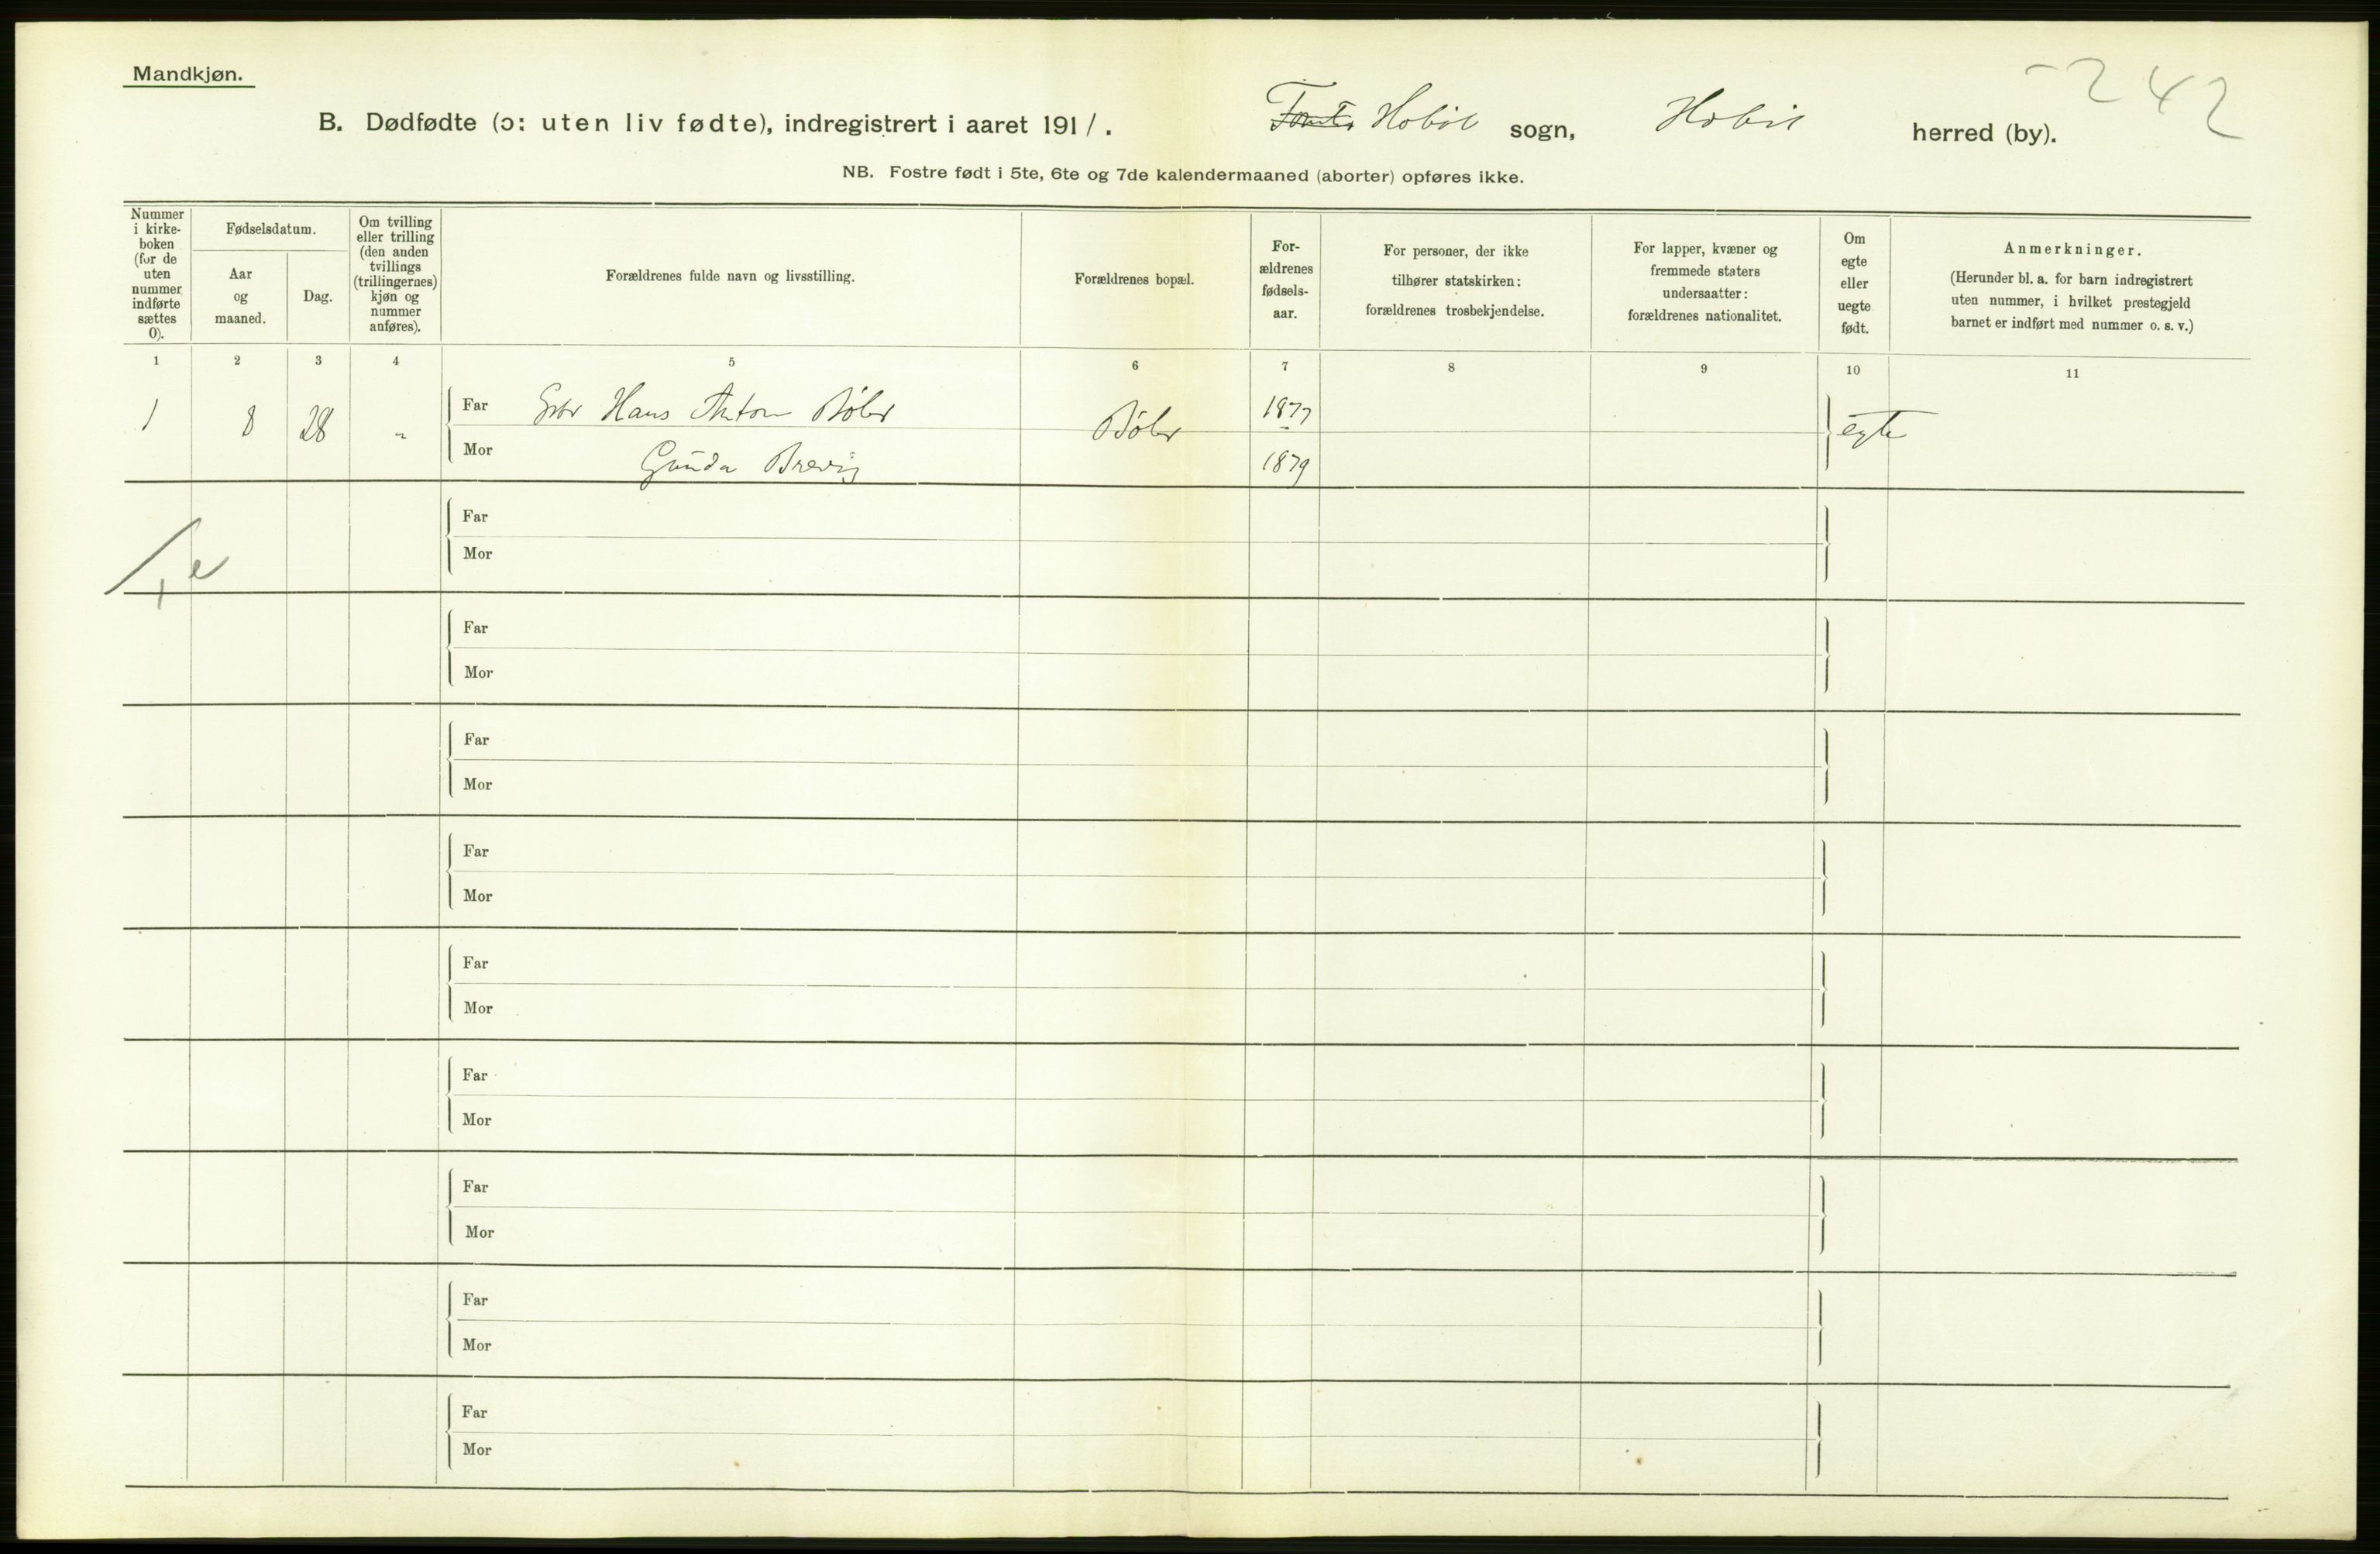 Mandkjøn.
242
B. Dødfødte (ɔ: uten liv fødte), indregistrert i aaret 1911. Hobøl sogn, Hobøl herred (by).
NB. Fostre født i 5te, 6te og 7de kalendermaaned (aborter) opføres ikke.
Nummer
i kirke-
boken
(for de
uten
nummer
indførte
sættes
0).
Fødselsdatum.
Aar
og
maaned.
Dag.
Om tvilling
eller trilling
(den anden
tvillings
(trillingernes)
kjøn og
nummer
anføres).
Forældrenes fulde navn og livsstilling.
Forældrenes bopæl.
For-
ældrenes
fødsels-
aar.
For personer, der ikke
tilhører statskirken:
forældrenes trosbekjendelse.
For lapper, kvæner og
fremmede staters
undersaatter:
forældrenes nationalitet.
Om
egte
eller
uegte
født.
Anmerkninger.
(Herunder bl. a. for barn indregistrert
uten nummer, i hvilket prestegjeld
barnet er indført med nummer o. s. v.)
1 2 3 4 5 6 7 8 9 10 11
1 8 28 „ Far Gbr Hans Anton Bøler Bøler 1877 egte
Mor Gunda Brevig 1879
Far
Mor
1 e
Far
Mor
Far
Mor
Far
Mor
Far
Mor
Far
Mor
Far
Mor
Far
Mor
Far
Mor